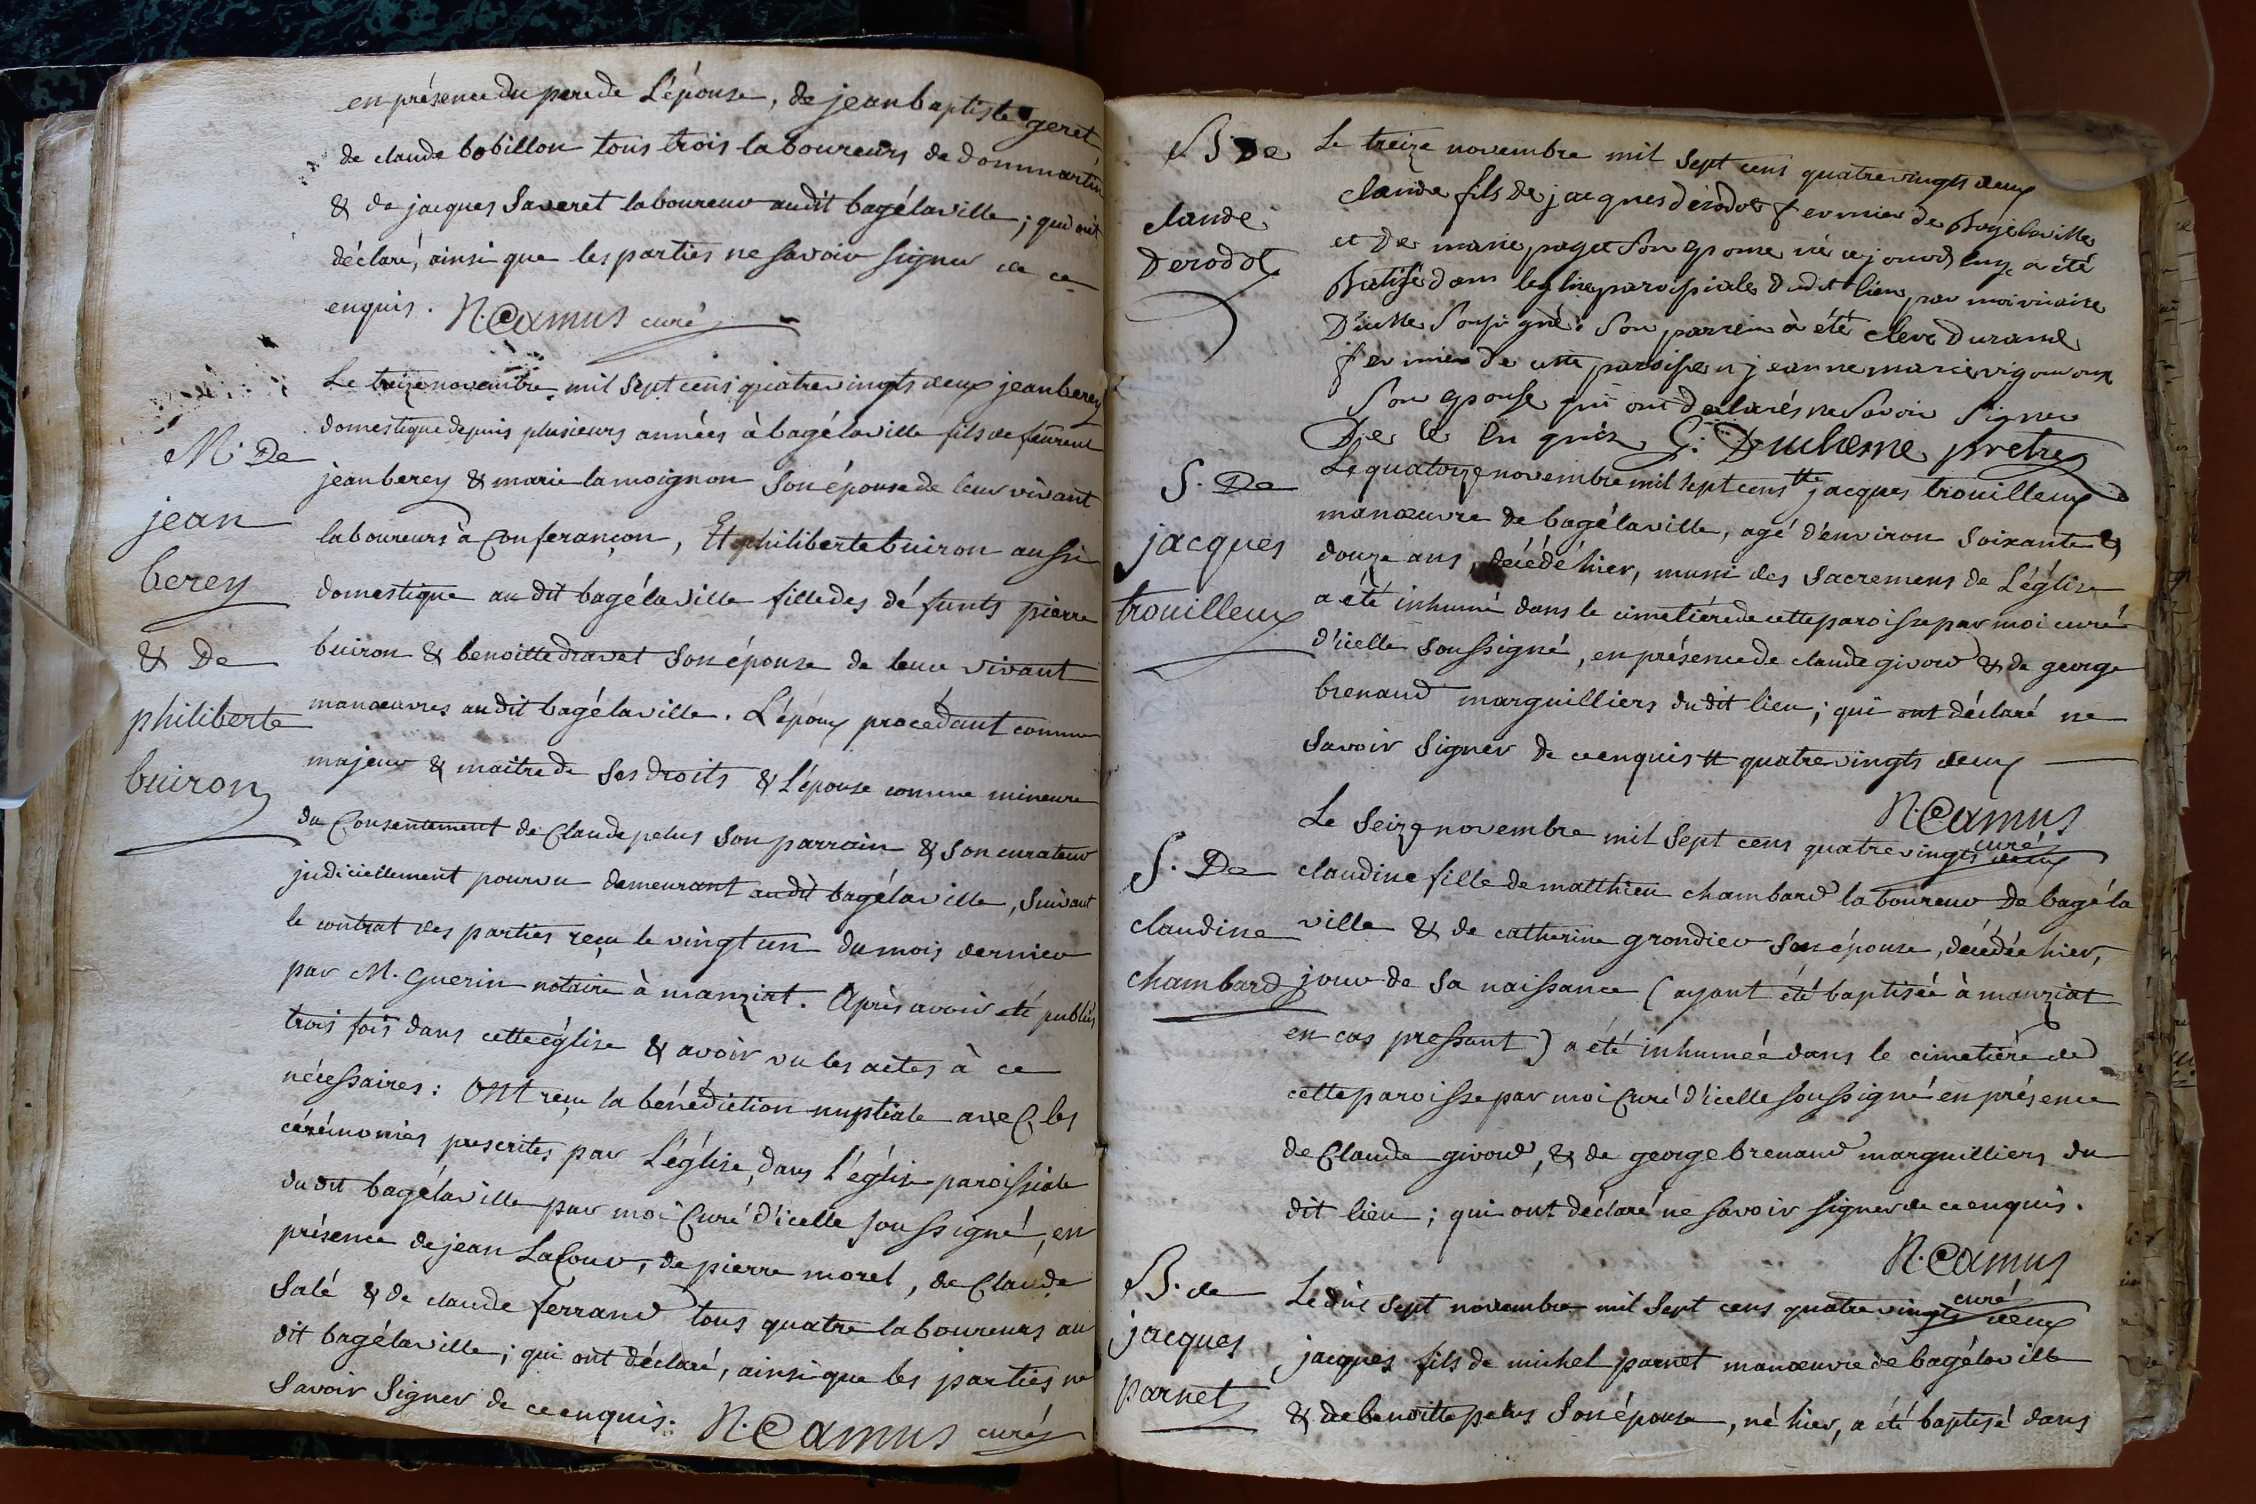 en présence du pere de L'épouse, de jean baptiste geret
de claude bobillon tous trois laboureurs de dommartin
& de jacques Saveret laboureur audit bagélaville ; qui ont
déclaré, ainsi que les parties ne savoir signer de ce
enquis. N. Camus curé
M. De
jean
berey
& De
philiberte
buiron
Le treize novembre mil sept cens quatre vingts deux jean berey
domestique depuis plusieurs années à bagélaville fils de feurent
jean berey & marie lamoignon son épouse de leur vivant
laboureurs à Conferançon, Et philiberte buiron aussi
domestique au dit bagélaville fille des défunts pierre
buiron & benoitte dravet son épouse de leur vivant
manœuvres audit bagélaville. L'époux procedant comme
majeur & maitre de ses droits & L'épouse comme mineure
du Consentement de Claude pelus son parrain & son curateur
judiciellement pourvu demeurant audit bagélaville, suivant
le contrat des parties reçu le vingt un du mois dernier
par M. Guerin notaire à manziat. Après avoir été publiés
trois fois dans cette église & avoir vu les actes à ce
nécessaires : ont reçu la bénédiction nuptiale avec les
cérémonies prescrites par L'église, dans L'église paroissiale
du dit bagélaville par moi Curé d'icelle soussigné, en
présence de jean LaCour, de pierre morel, de Claude
Salé & de claude ferrand tous quatre laboureurs au
dit bagélaville ; qui ont déclaré, ainsi que les parties ne
savoir signer de ce enquis. N. Camus curé
B De
claude
Derodot
Le treize novembre mil sept cens quatre vingts deux
claude fils de jacques dérodot fermier de Bagélaville
et De marie paget son epouse né cejourdhuy a été
Batisé dans leglise paroissiale dudit lieu par moi vicaire
D'icelle soussigné : son parrein à été clere Durand
fermier de cette paroisse jeanne marie vigouroux
son epouse qui ont declarés ne savoir signer
De le en quis G: Duchesne pretre
S. De
jacques
trouilleux
Le quatorze novembre mil sept cens tt jacques trouilleux
manœuvre de bagélaville, agé d'environ soixante &
douze ans, décédé hier, muni des sacremens de L'église
a été inhumé dans le cimetiére de cette paroisse par moi curé
d'icelle soussigné, en présence de claude givord & de george
brenaud marguilliers du dit lieu ; qui ont déclaré ne
savoir signer de ce enquis tt quatre vingts deux
N. Camus
curé
S. De
claudine
chambard
Le seize novembre mil sept cens quatre vingts deux
claudine fille de matthieu chambard laboureur De bagéla
ville & de catherine grondier son épouse, décédée hier,
jour de sa naissance (ayant été baptisée à manziat
en cas pressant) a été inhumée dans le cimetiére de
cette paroisse par moi Curé d'icelle soussigné en présence
de Claude givord, & de george brenaud marguilliers du
dit lieu ; qui ont déclaré ne savoir signer de ce enquis.
N. Camus
curé
B. de
jacques
parnet
Le dix sept novembre mil sept cens quatre vingts deux
jacques fils de michel parnet manœuvre de bagélaville
& de benoitte pelus son épouse, né hier, a été baptisé dans